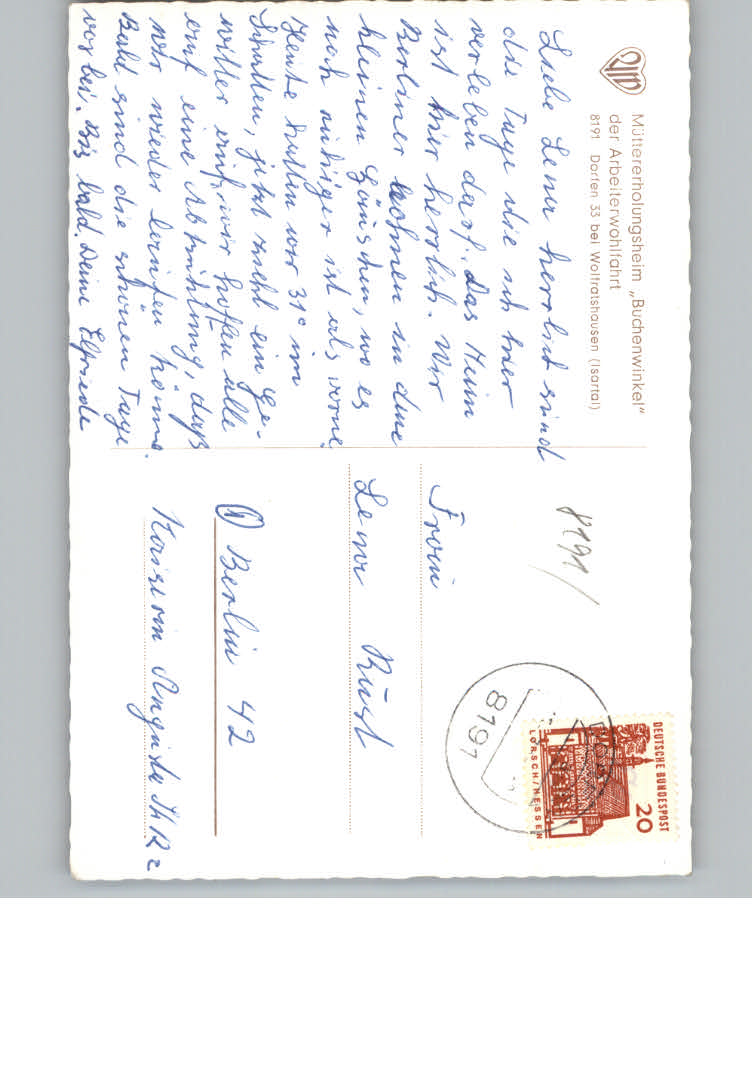 Müttererholungsheim „Buchenwinkel"
der Arbeiterwohlfahrt
8191 Dorfen 33 bei Wolfratshausen (Isartal)
Liebe Lena herrlich sind
die Tage die ich hier
verleben darf. Das Heim
ist hier herrlich. Wir
Berliner wohnen in dem
kleinen Häuschen, wo es
noch ruhiger ist als vorne.
Heute hatten wir 31° im
Schatten, jetzt zieht ein Ge-
witter auf, wir hoffen alle
auf eine Abkühlung, daß
wir wieder laufen können.
Bald sind die schönen Tage
vorbei. Bis bald. Deine Elfriede
8191
DEUTSCHE BUNDESPOST
20
LORSCH/HESSEN
8191
Frau
Lena Rüst
1 Berlin 42
Kaiserin Augusta Str 2